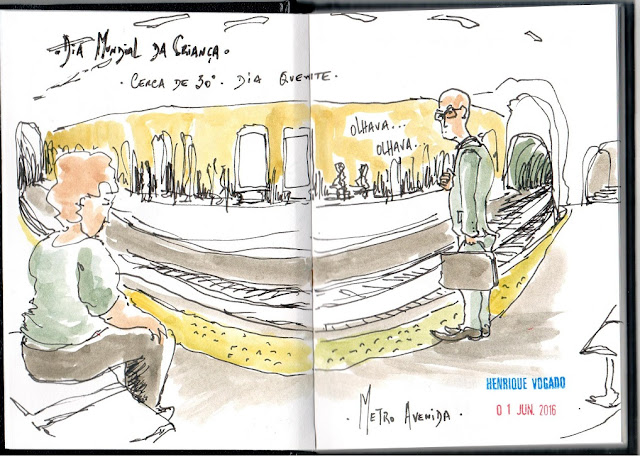 . DIA MUNDIAL DA CRIANÇA .
. CERCA DE 30° . DIA QUENTE .
OLHAVA...
OLHAVA.
HENRIQUE VOGADO
01 JUN. 2016
. METRO AVENIDA .